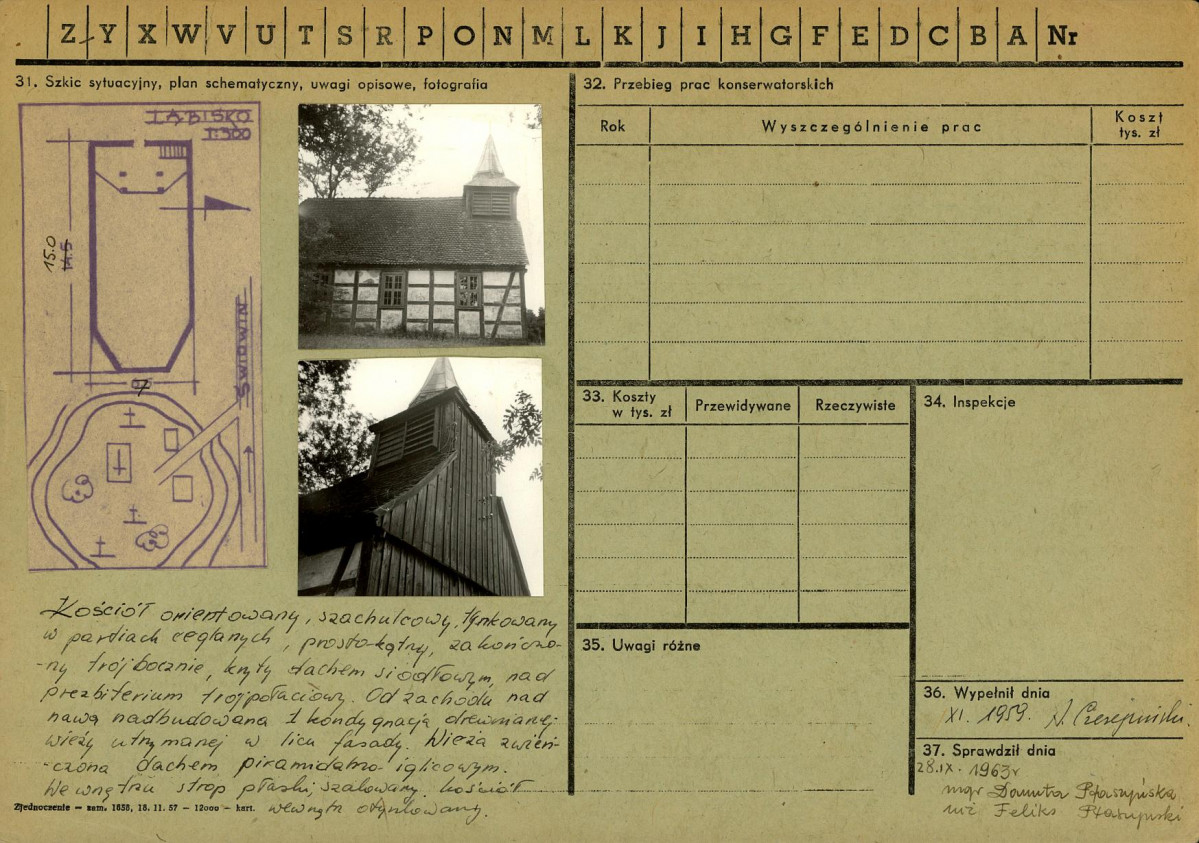 Z Y X W V U T S R P O N M L K J I H G F E D C B A Nr
31. Szkic sytuacyjny, plan schematyczny, uwagi opisowe, fotografia
ŁĄBISKO
1:300
15.0
14.5
7
ŚWIDWIN
Kościół orientowany, szachulcowy, tynkowany
w partiach ceglanych, prostokątny, zakończo-
-ny trójbocznie, kryty dachem siodłowym, nad
prezbiterium trójpołaciowy. Od zachodu nad
nawą nadbudowana 1 kondygnacja drewnianej
wieży utrzymanej w licu fasady. Wieża zwień-
-czona dachem piramidalno iglicowym.
We wnętrzu strop płaski, szalowany. Kościół
wewnątrz otynkowany.
Zjednoczenie — zam. 1858, 18. 11. 57 — 12000 — kart.
32. Przebieg prac konserwatorskich
Rok Wyszczególnienie prac Koszt
tys. zł
33. Koszty
w tys. zł
Przewidywane Rzeczywiste
34. Inspekcje
35. Uwagi różne
36. Wypełnił dnia
XI. 1959.
37. Sprawdził dnia
28.IX. 1963r
mgr Danuta Ptaszyńska
inż Feliks Ptaszyński